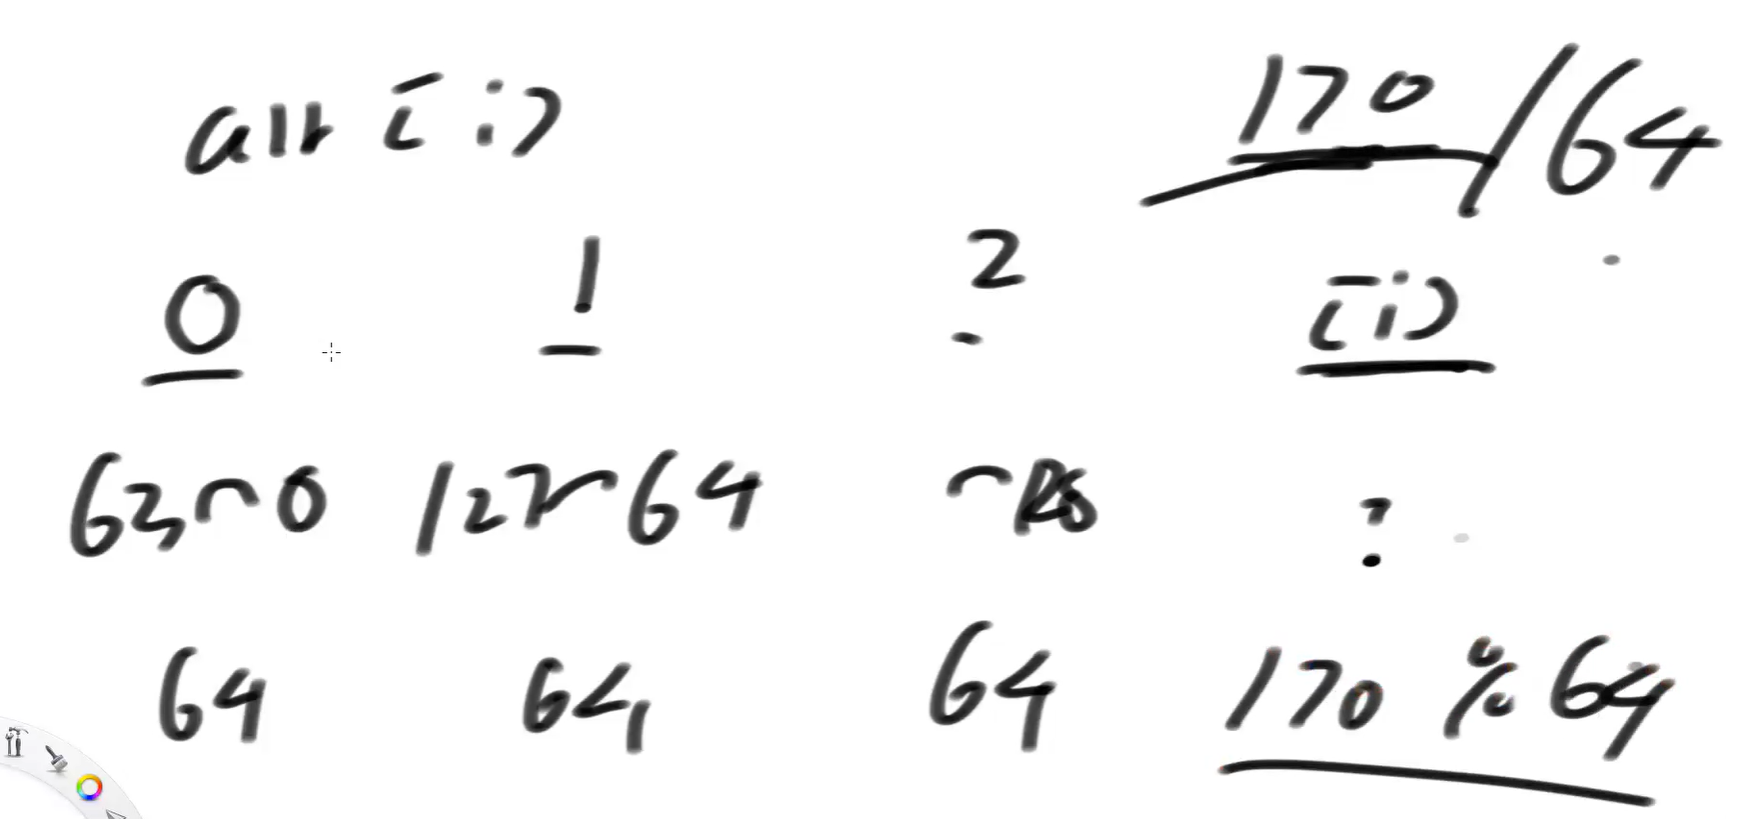 arr [i]
170/64
0 1 2 [i]
63~0 127~64 ~128 ?
64 64 64 170 % 64